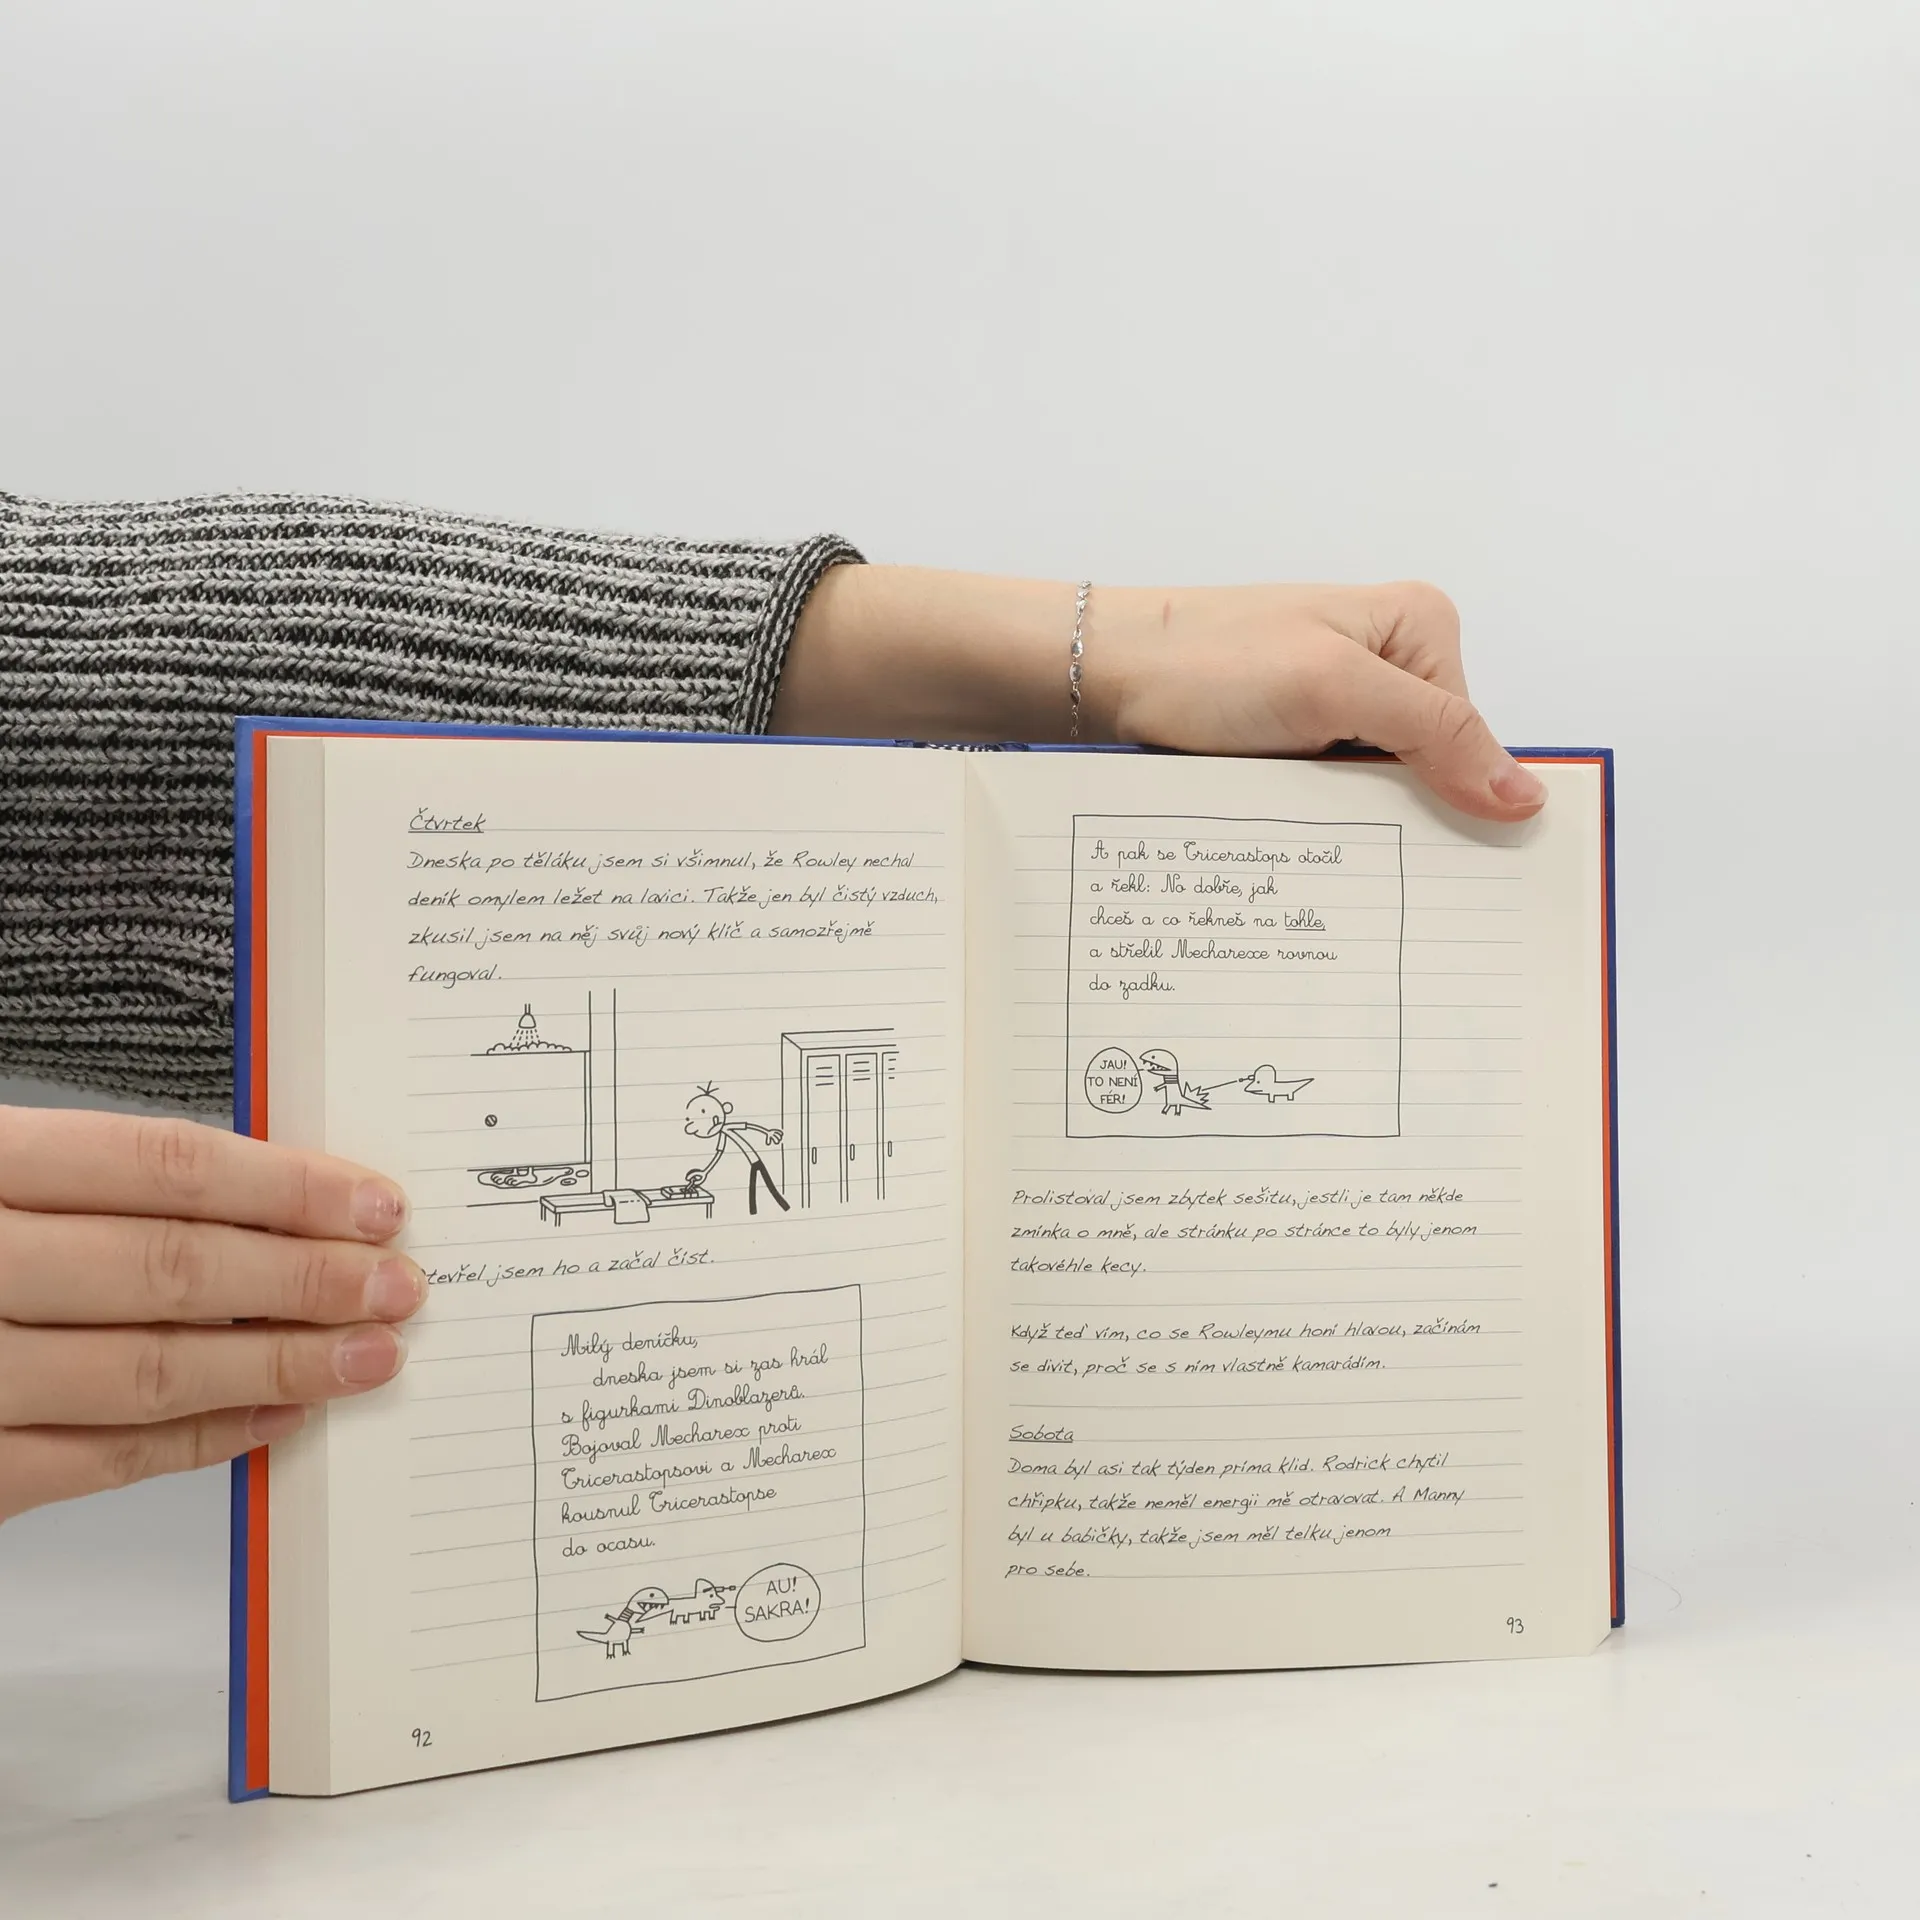 Čtvrtek
Dneska po těláku jsem si všimnul, že Rowley nechal
deník omylem ležet na lavici. Takže jen byl čistý vzduch,
zkusil jsem na něj svůj nový klíč a samozřejmě
fungoval.
tevřel jsem ho a začal číst.
Milý deníčku,
dneska jsem si zas hrál
s figurkami Dinoblazerů.
Bojoval Mecharex proti
Tricerastopsovi a Mecharex
kousnul Tricerastopse
do ocasu.
AU!
SAKRA!
92
A pak se Tricerastops otočil
a řekl: No dobře, jak
chceš a co řekneš na tohle,
a střelil Mecharexe rovnou
do zadku.
JAU!
TO NENÍ
FÉR!
Prolistoval jsem zbytek sešitu, jestli je tam někde
zmínka o mně, ale stránku po stránce to byly jenom
takovéhle kecy.
Když teď vím, co se Rowleymu honí hlavou, začínám
se divit, proč se s ním vlastně kamarádím.
Sobota
Doma byl asi tak týden prima klid. Rodrick chytil
chřipku, takže neměl energii mě otravovat. A Manny
byl u babičky, takže jsem měl telku jenom
pro sebe.
93